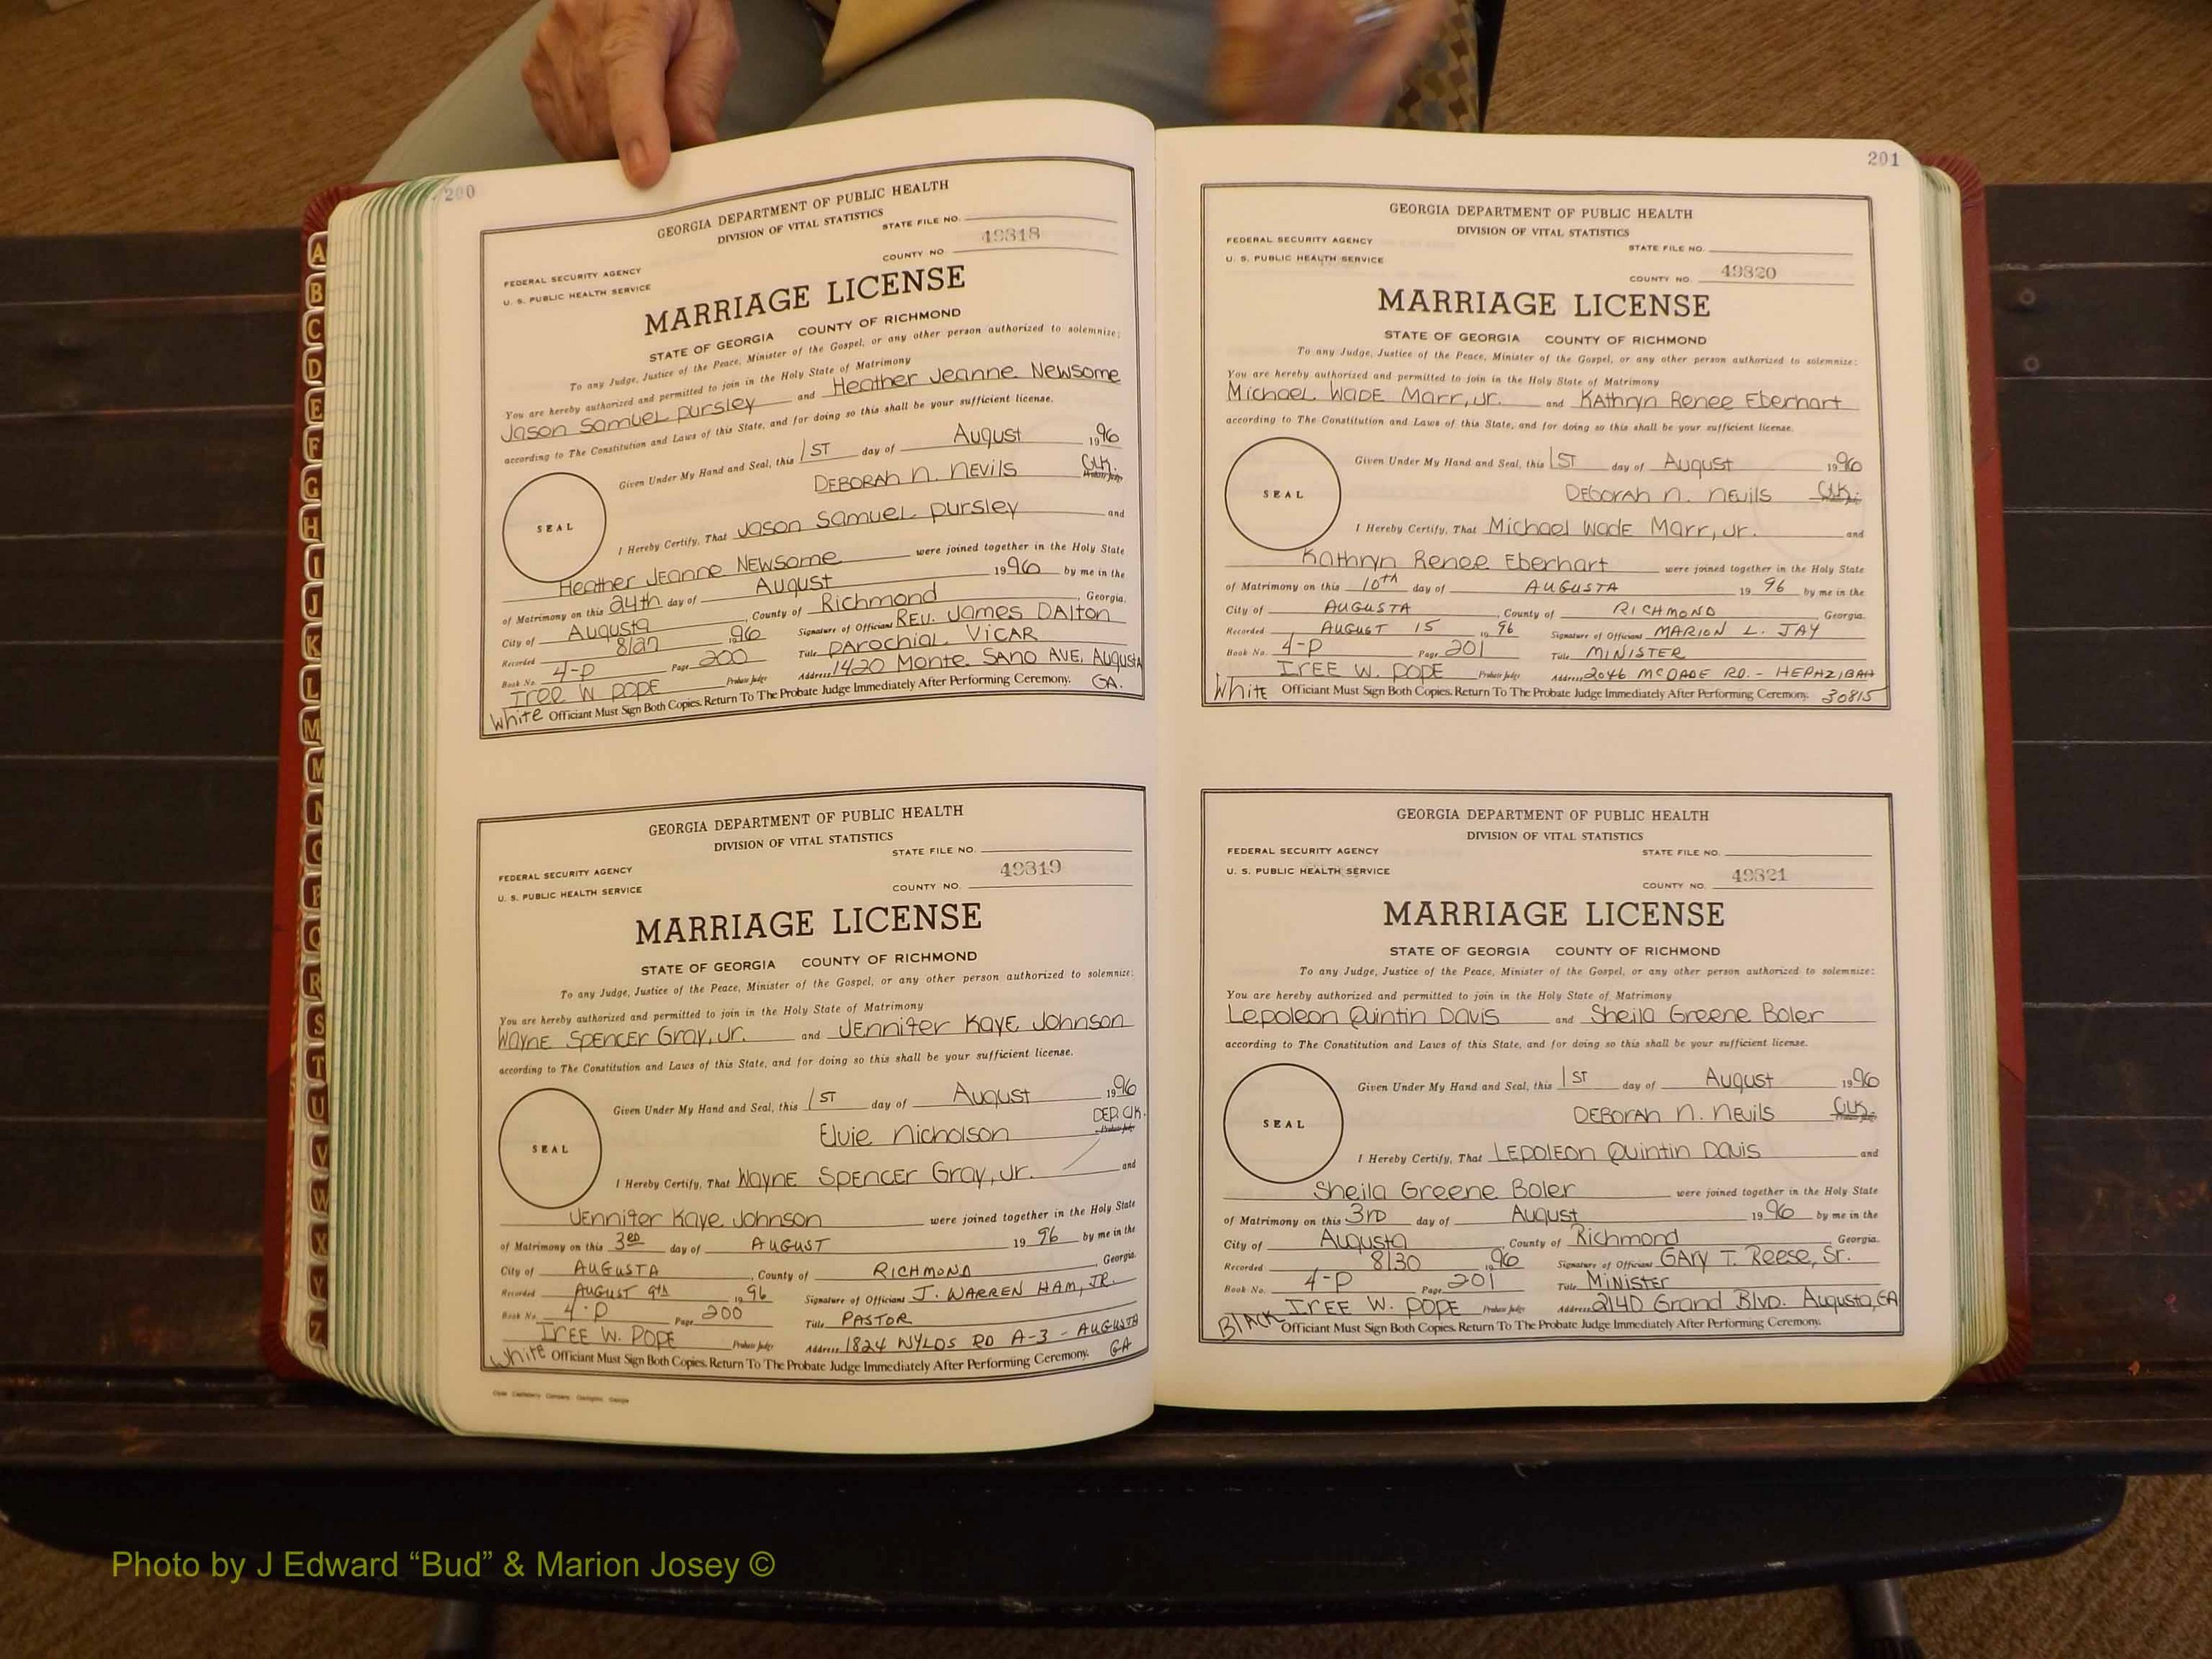 200
GEORGIA DEPARTMENT OF PUBLIC HEALTH
DIVISION OF VITAL STATISTICS
STATE FILE NO.
49318
COUNTY NO.
FEDERAL SECURITY AGENCY
U. S. PUBLIC HEALTH SERVICE
MARRIAGE LICENSE
STATE OF GEORGIA COUNTY OF RICHMOND
To any Judge, Justice of the Peace, Minister of the Gospel, or any other person authorized to solemnize:
You are hereby authorized and permitted to join in the Holy State of Matrimony
Jason Samuel Pursley and Heather Jeanne Newsome
according to The Constitution and Laws of this State, and for doing so this shall be your sufficient license.
Given Under My Hand and Seal, this 1ST day of August 1996
DEBORAH N. NEVILS CLK.
Probate Judge
SEAL
I Hereby Certify, That Jason Samuel Pursley and
Heather Jeanne Newsome were joined together in the Holy State
of Matrimony on this 24th day of August 1996 by me in the
City of Augusta, County of Richmond, Georgia.
Recorded 8/27 1996 Signature of Officiant REV. James Dalton
Book No. 4-P Page 200 Title Parochial Vicar
Iree W. Pope Probate Judge Address 1420 Monte Sano Ave, Augusta
White Officiant Must Sign Both Copies. Return To The Probate Judge Immediately After Performing Ceremony. GA.
GEORGIA DEPARTMENT OF PUBLIC HEALTH
DIVISION OF VITAL STATISTICS
STATE FILE NO.
49319
COUNTY NO.
FEDERAL SECURITY AGENCY
U. S. PUBLIC HEALTH SERVICE
MARRIAGE LICENSE
STATE OF GEORGIA COUNTY OF RICHMOND
To any Judge, Justice of the Peace, Minister of the Gospel, or any other person authorized to solemnize:
You are hereby authorized and permitted to join in the Holy State of Matrimony
Wayne Spencer Gray, Jr. and Jennifer Kaye Johnson
according to The Constitution and Laws of this State, and for doing so this shall be your sufficient license.
Given Under My Hand and Seal, this 1ST day of August 1996
Elvie Nicholson DEP. CLK.
Probate Judge
SEAL
I Hereby Certify, That Wayne Spencer Gray, Jr. and
Jennifer Kaye Johnson were joined together in the Holy State
of Matrimony on this 3RD day of AUGUST 1996 by me in the
City of AUGUSTA, County of RICHMOND, Georgia.
Recorded AUGUST 9th 1996 Signature of Officiant J. WARREN HAM, JR.
Book No. 4-P Page 200 Title PASTOR
IREE W. POPE Probate Judge Address 1824 WYLDS RD A-3 - AUGUSTA
White Officiant Must Sign Both Copies. Return To The Probate Judge Immediately After Performing Ceremony. GA
201
GEORGIA DEPARTMENT OF PUBLIC HEALTH
DIVISION OF VITAL STATISTICS
FEDERAL SECURITY AGENCY
STATE FILE NO.
U. S. PUBLIC HEALTH SERVICE
COUNTY NO. 49320
MARRIAGE LICENSE
STATE OF GEORGIA COUNTY OF RICHMOND
To any Judge, Justice of the Peace, Minister of the Gospel, or any other person authorized to solemnize:
You are hereby authorized and permitted to join in the Holy State of Matrimony
Michael Wade Marr, Jr. and Kathryn Renee Eberhart
according to The Constitution and Laws of this State, and for doing so this shall be your sufficient license.
Given Under My Hand and Seal, this 1ST day of August 1996
Deborah N. Nevils CLK.
SEAL
I Hereby Certify, That Michael Wade Marr, Jr. and
Kathryn Renee Eberhart were joined together in the Holy State
of Matrimony on this 10th day of AUGUSTA 1996 by me in the
City of AUGUSTA, County of RICHMOND Georgia.
Recorded AUGUST 15 1996 Signature of Officiant MARION L. JAY
Book No. 4-P Page 201 Title MINISTER
IREE W. POPE Probate Judge Address 2046 MCDADE RD. - HEPHZIBAH
White Officiant Must Sign Both Copies. Return To The Probate Judge Immediately After Performing Ceremony. 30815
GEORGIA DEPARTMENT OF PUBLIC HEALTH
DIVISION OF VITAL STATISTICS
FEDERAL SECURITY AGENCY
STATE FILE NO.
U. S. PUBLIC HEALTH SERVICE
COUNTY NO. 49321
MARRIAGE LICENSE
STATE OF GEORGIA COUNTY OF RICHMOND
To any Judge, Justice of the Peace, Minister of the Gospel, or any other person authorized to solemnize:
You are hereby authorized and permitted to join in the Holy State of Matrimony
Lepoleon Quintin Davis and Sheila Greene Boler
according to The Constitution and Laws of this State, and for doing so this shall be your sufficient license.
Given Under My Hand and Seal, this 1ST day of August 1996
DEBORAH N. Nevils CLK.
SEAL
I Hereby Certify, That LEPOLEON Quintin Davis and
Sheila Greene Boler were joined together in the Holy State
of Matrimony on this 3RD day of August 1996 by me in the
City of Augusta, County of Richmond Georgia.
Recorded 8/30 1996 Signature of Officiant Gary T. Reese, Sr.
Book No. 4-P Page 201 Title Minister
IREE W. POPE Probate Judge Address 2140 Grand Blvd. Augusta, GA
Black Officiant Must Sign Both Copies. Return To The Probate Judge Immediately After Performing Ceremony.
A
B
C
D
E
F
G
H
I
J
K
L
M
M
N
O
P
Q
R
S
T
U
V
W
X
Y
Z
Photo by J Edward “Bud” & Marion Josey ©